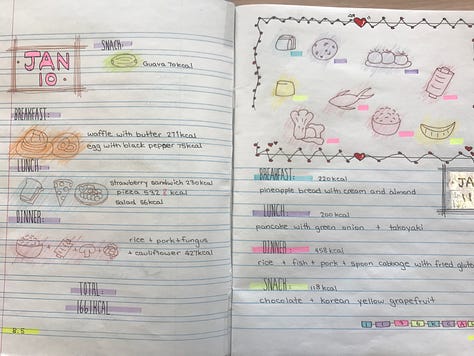 JAN
10
SNACK:
Guava 70kcal
BREAKFAST:
waffle with butter 271kcal
egg with black pepper 75kcal
LUNCH:
strawberry sandwich 230kcal
pizza 532 kcal
salad 56kcal
DINNER:
rice + pork+fungus
+ cauliflower 427kcal
TOTAL:
1661KCAL
BREAKFAST: 220kcal
pineapple bread with cream and almond
JA
11
LUNCH: 200kcal
pancake with green onion + takoyaki
DINNER: 458kcal
rice + fish + pork + spoon cabbage with fried glute
SNACK: 118kcal
chocolate + korean yellow grapefruit